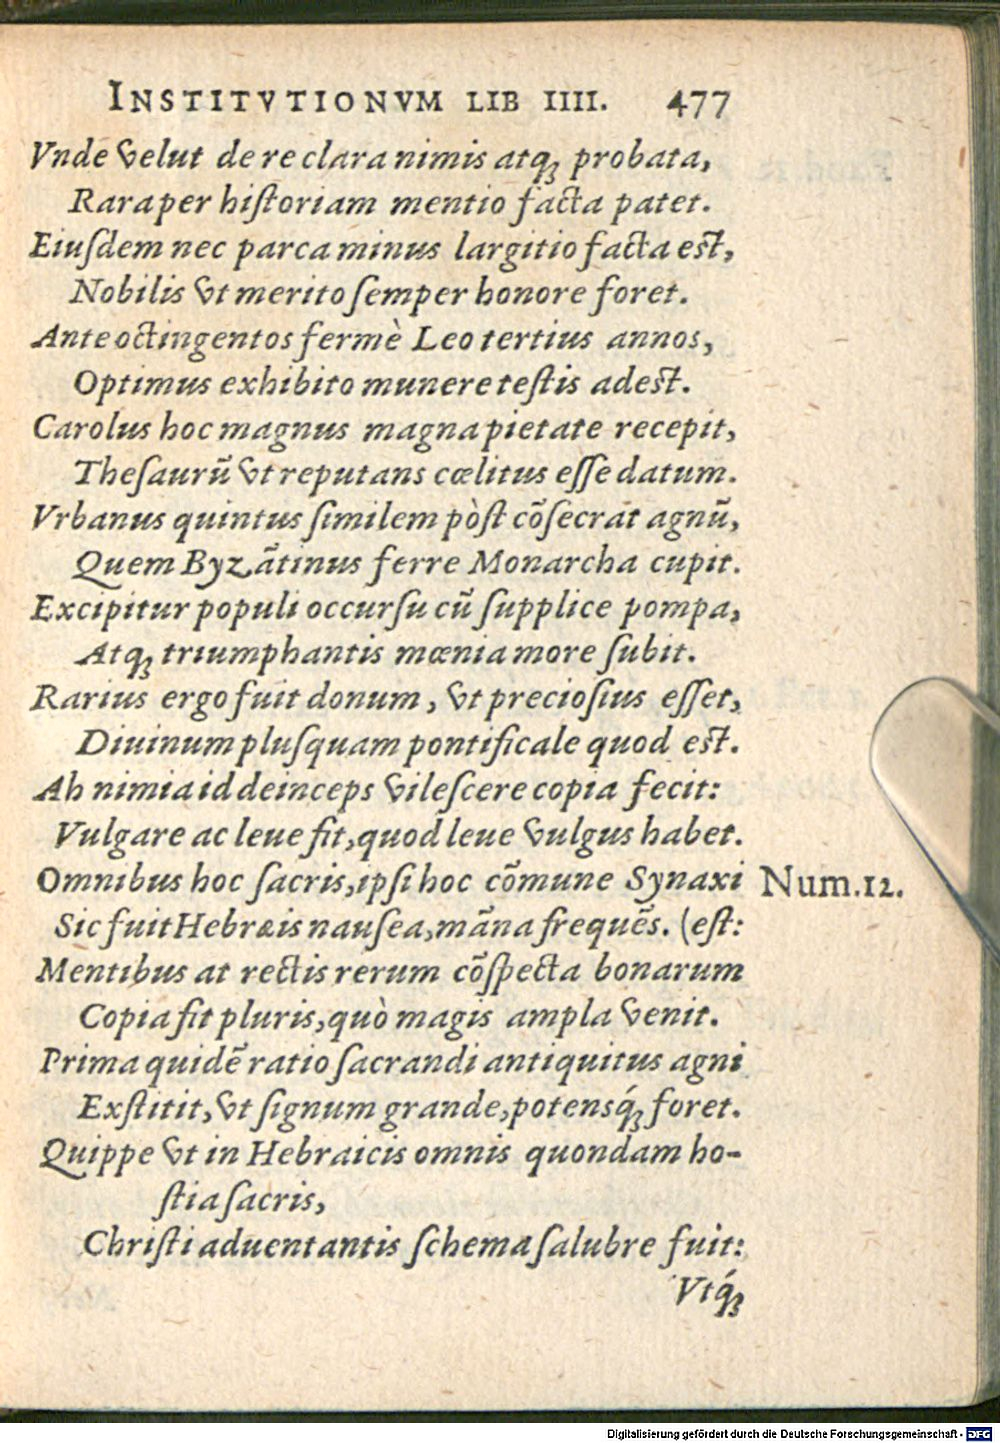 INSTITVTIONVM LIB IIII. 477
Vnde velut de re clara nimis atq; probata,
Rara per hiſtoriam mentio facta patet.
Eiuſdem nec parca minus largitio facta eſt,
Nobilis vt merito ſemper honore foret.
Ante octingentos fermè Leo tertius annos,
Optimus exhibito munere teſtis adeſt.
Carolus hoc magnus magna pietate recepit,
Theſaurũ vt reputans cœlitus eſſe datum.
Vrbanus quintus ſimilem pòſt cõſecrat agnũ,
Quem Byzãtinus ferre Monarcha cupit.
Excipitur populi occurſu cũ ſupplice pompa,
Atq; triumphantis mœnia more ſubit.
Rarius ergo fuit donum, vt precioſius eſſet,
Diuinum pluſquam pontificale quod eſt.
Ah nimia id deinceps vileſcere copia fecit:
Vulgare ac leue fit, quod leue vulgus habet.
Omnibus hoc ſacris, ipſi hoc cõmune Synaxi Num.12.
Sic fuit Hebræis nauſea, mãna frequẽs. (eſt:
Mentibus at rectis rerum cõſpecta bonarum
Copia fit pluris, quò magis ampla venit.
Prima quidẽ ratio ſacrandi antiquitus agni
Exſtitit, vt ſignum grande, potensq́; foret.
Quippe vt in Hebraicis omnis quondam ho-
ſtia ſacris,
Chriſti aduentantis ſchema ſalubre fuit:
Vtq́;
Digitalisierung gefördert durch die Deutsche Forschungsgemeinschaft - DFG